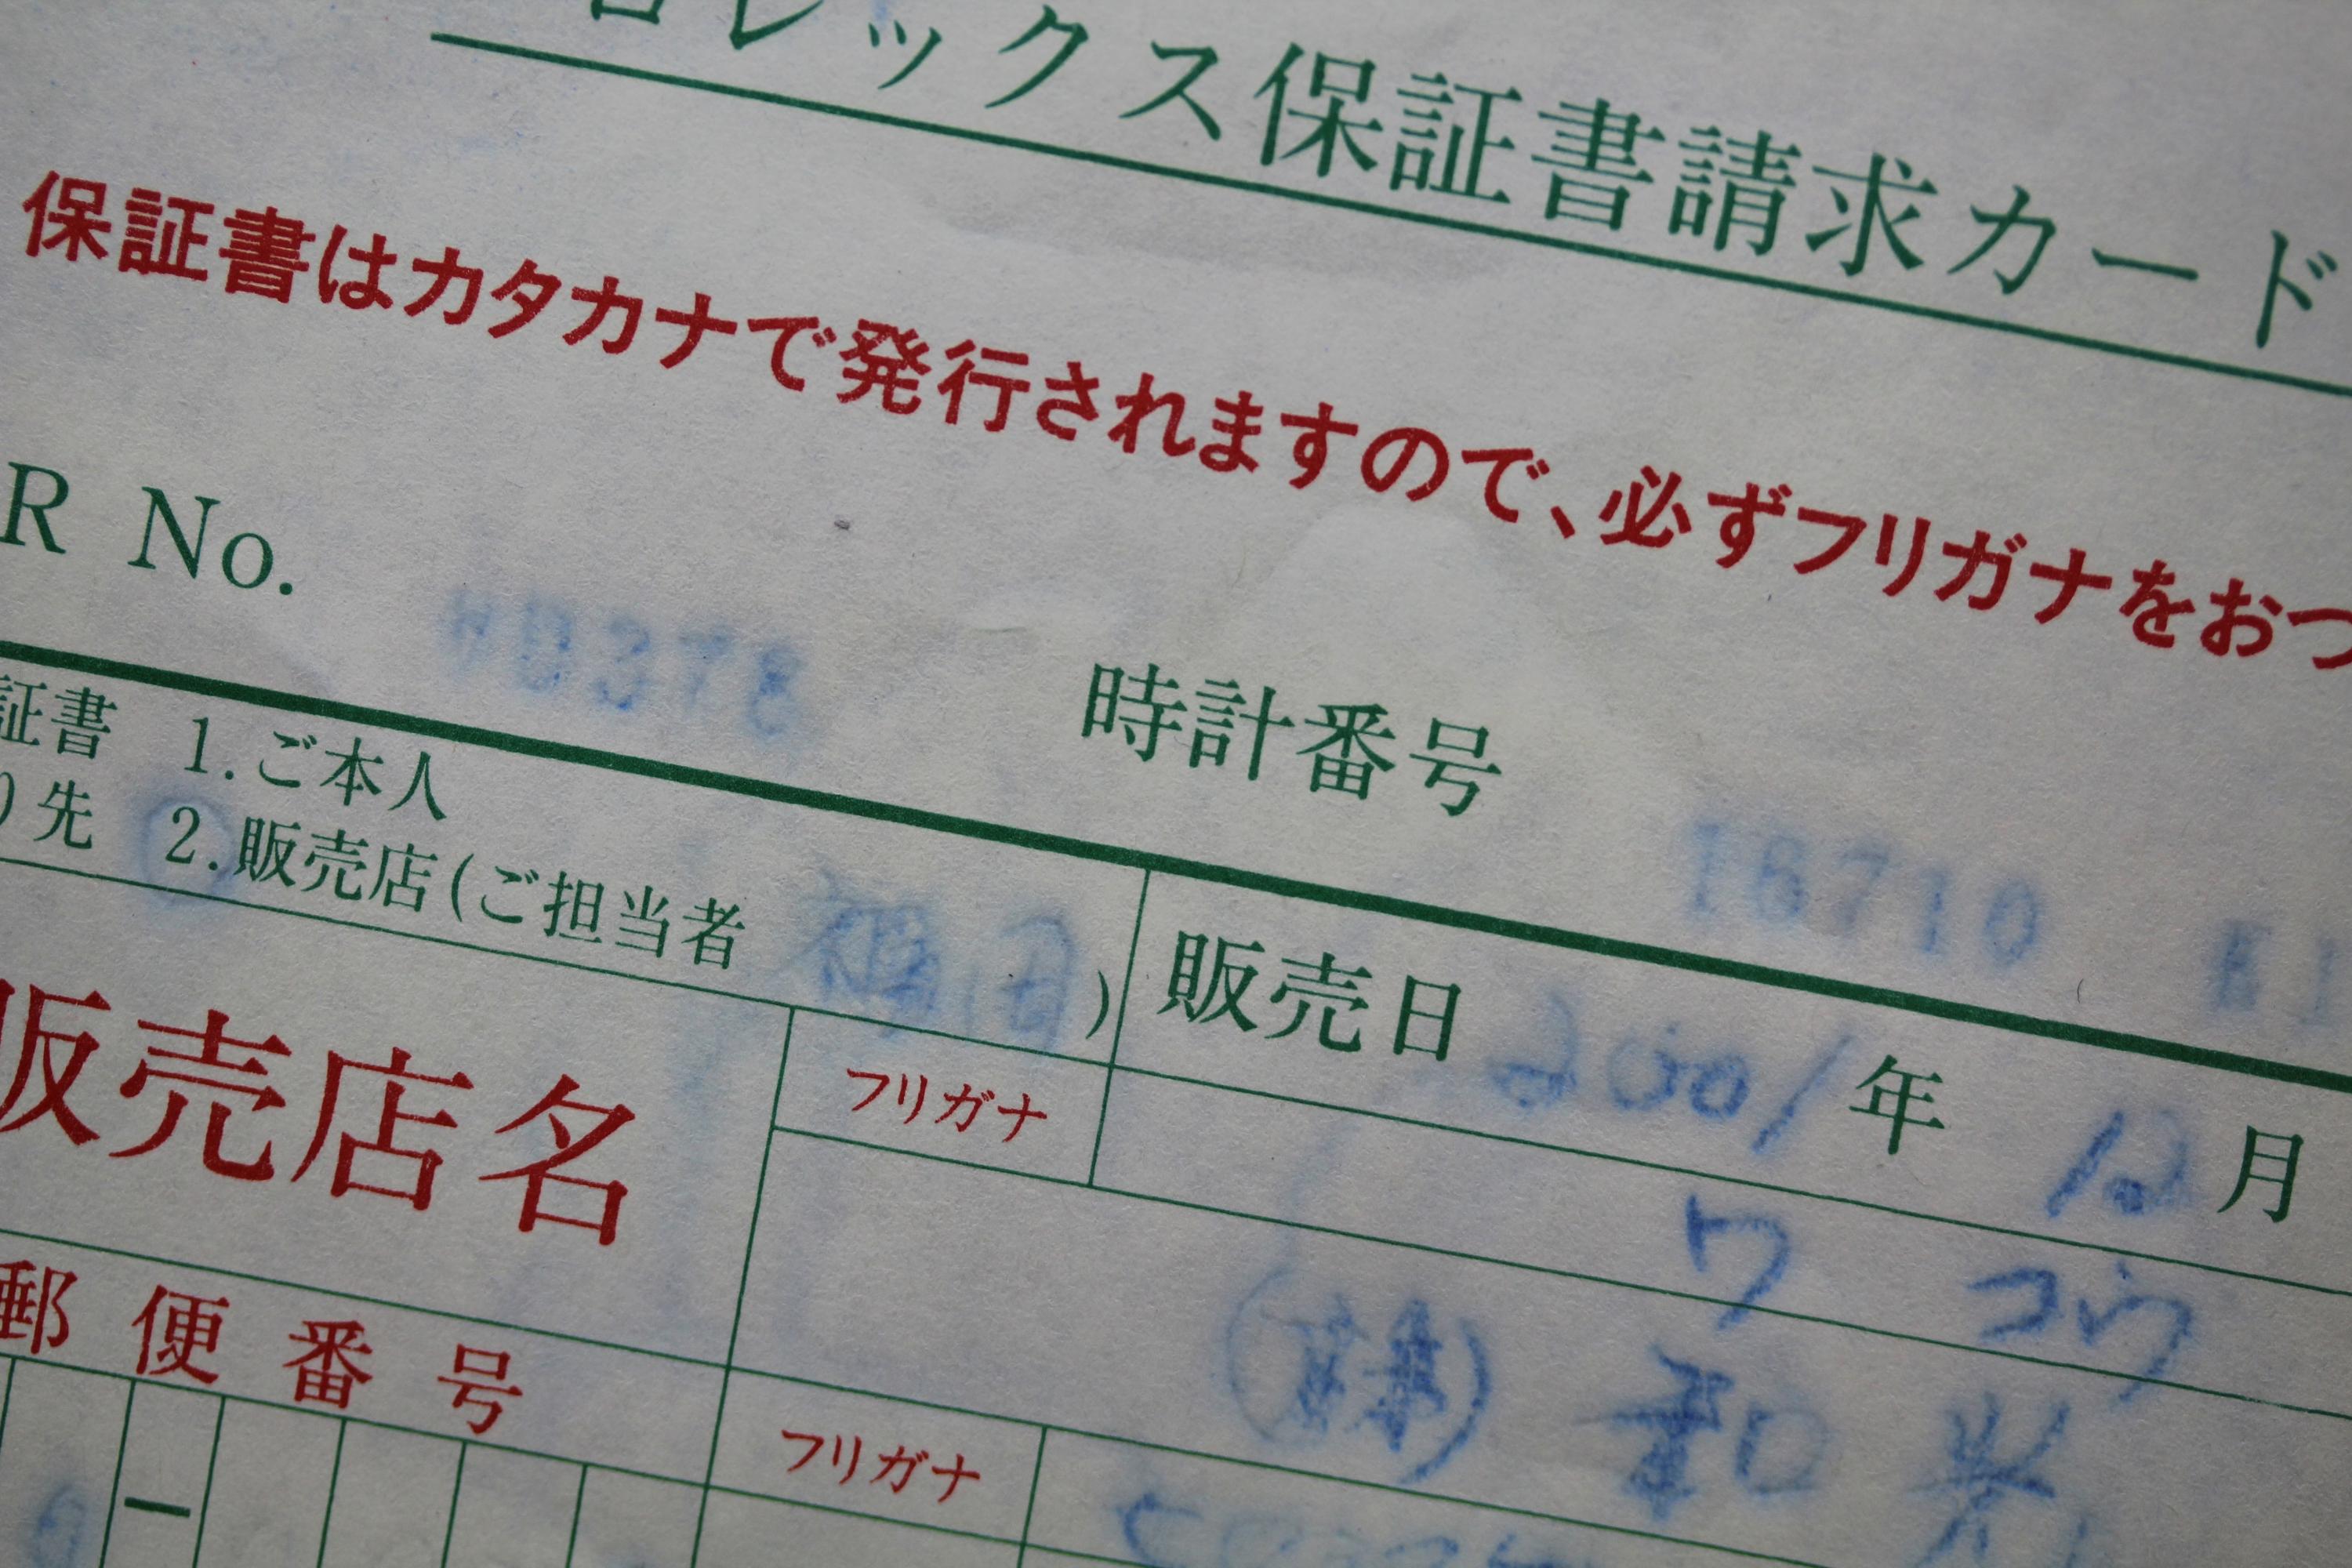 ロレックス保証書請求カード
保証書はカタカナで発行されますので、必ずフリガナをおつ
R No. 時計番号 16710
証書 1.ご本人
)先 2.販売店(ご担当者 ) 販売日 2001年 12月
販売店名 フリガナ ワコウ
(株) 和光
郵便番号 フリガナ